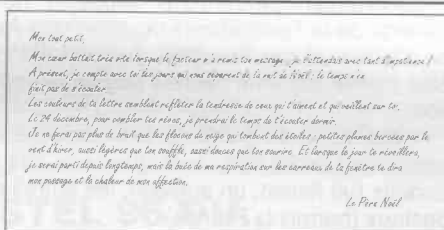 Mon tout petit,
Mon cœur battait très vite lorsque le facteur m'a remis ton message : je l'attendais avec tant d'impatience !
A présent, je compte avec toi les jours qui nous séparent de la nuit de Noël : le temps n'en
finit pas de s'écouler.
Les couleurs de ta lettre semblent refléter la tendresse de ceux qui t'aiment et qui veillent sur toi.
Le 24 décembre, pour combler tes rêves, je prendrai le temps de t'écouter dormir.
Je ne ferai pas plus de bruit que les flocons de neige qui tombent des étoiles : petites plumes bercées par le
vent d'hiver, aussi légères que ton souffle, aussi douces que ton sourire. Et lorsque le jour te réveillera,
je serai parti depuis longtemps, mais la buée de ma respiration sur les carreaux de ta fenêtre te dira
mon passage et la chaleur de mon affection.
Le Père Noël